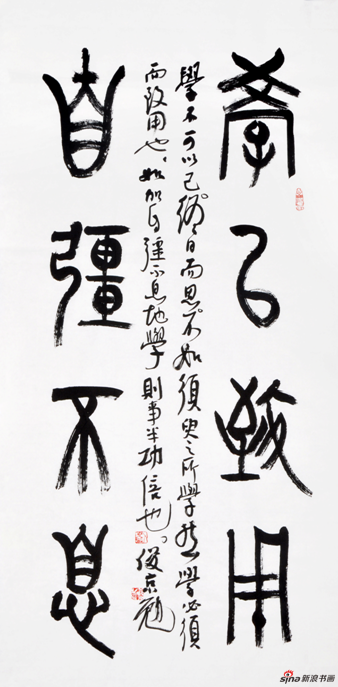 學以致用
學不可以已終日而思不如須臾之所學然學必須
而致用也。如加自彊不息地學則事半功倍也。俊京題
自彊不息
sina新浪书画